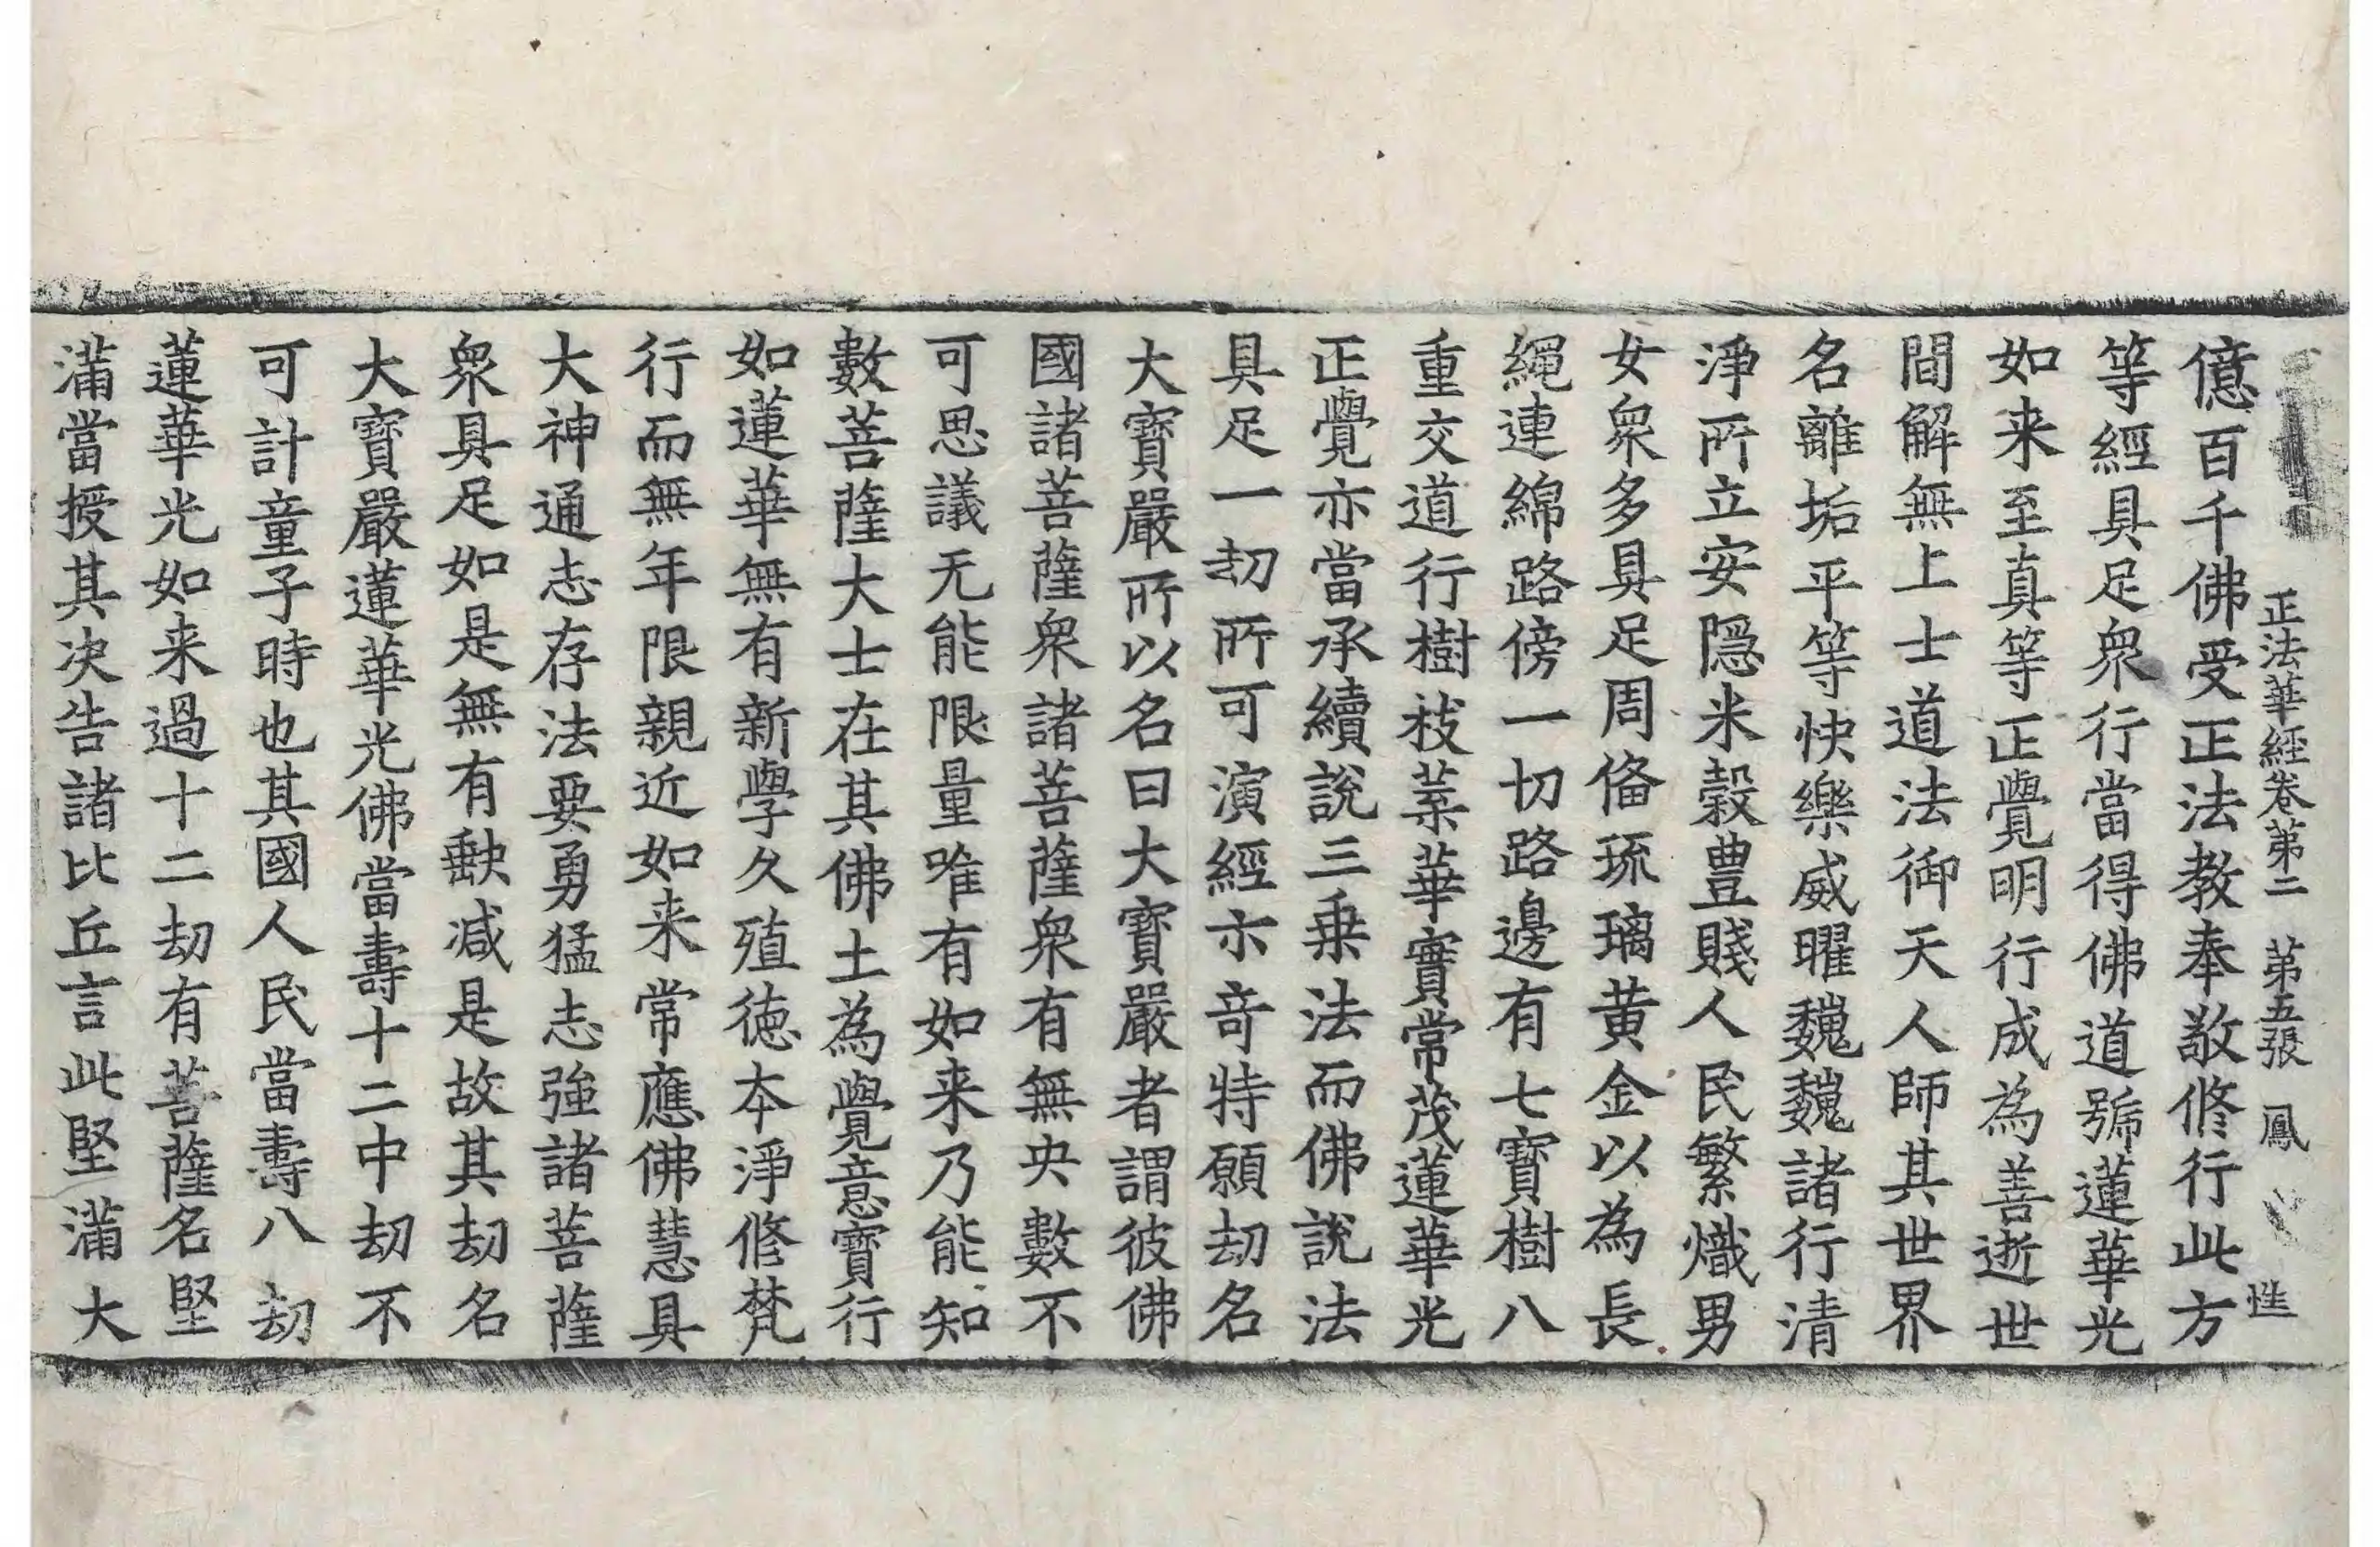 正法華經卷第二 第五張 鳳 惟
億百千佛受正法教奉敬修行此方
等經具足衆行當得佛道號蓮華光
如来至真等正覺明行成為善逝世
間解無上士道法御天人師其世界
名離垢平等快樂威曜巍巍諸行清
淨所立安隠米穀豊賤人民繁熾男
女衆多具足周俻琉璃黄金以為長
繩連綿路傍一切路邊有七寶樹八
重交道行樹枝葉華實常茂蓮華光
正覺亦當承續說三乗法而佛說法
具足一劫所可演經亦竒特願劫名
大寶嚴所以名曰大寶嚴者謂彼佛
國諸菩薩衆諸菩薩衆有無央數不
可思議无能限量唯有如来乃能知
數菩薩大士在其佛土為覺意寶行
如蓮華無有新學久殖徳本淨修梵
行而無年限親近如来常應佛慧具
大神通志存法要勇猛志強諸菩薩
衆具足如是無有缺减是故其劫名
大寶嚴蓮華光佛當壽十二中劫不
可計童子時也其國人民當壽八劫
蓮華光如来過十二劫有菩薩名堅
滿當授其决告諸比丘言此堅滿大